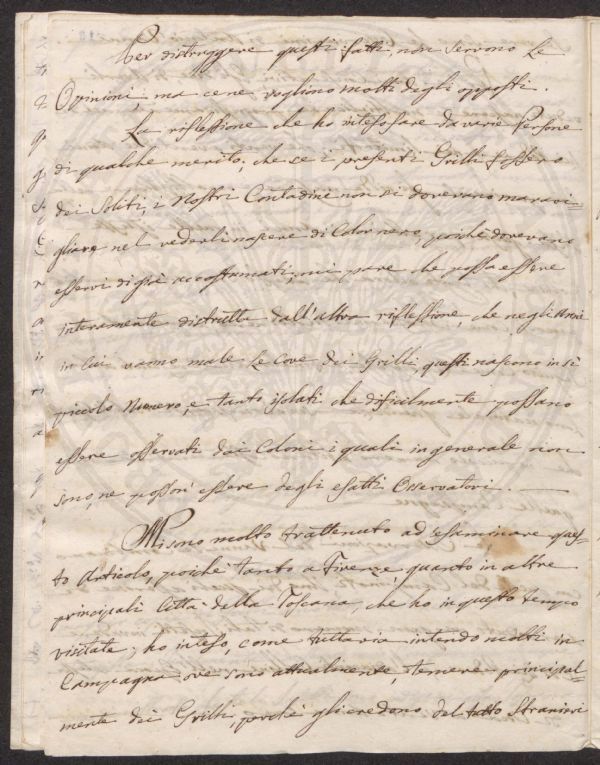 Per distruggere questi fatti, non servono Le
Opinioni, ma cene vogliono molti degli opposti.
La riflessione che ho inteso fare da varie Persone
di qualche merito; che se i presenti Grilli fossero
dei Soliti, i Nostri Contadini non si dovevano maravi=
gliare nel vederli nascere di Color nero, poiché dovevano
esservi di già accostumati, mi pare che possa essere
interamente distrutta dall'altra riflessione, che negli Anni
in Cui vanno male Le Cove dei Grilli questi nascono in sì
piccolo Numero, e tanto isolati che dificilmente possano
essere osservati dai Coloni i quali in generale non
sono, ne posson' essere degli esatti Osservatori.
Mi sono molto trattenuto ad esaminare ques=
to Articolo, poiché tanto a Firenze, quanto in altre
principali Città della Toscana, che ho in questo tempo
visitate; ho inteso, come tuttavia intendo molti in
Campagna ove sono attualmente, temere principal=
mente dei Grilli, perché gli credono del tutto Stranieri